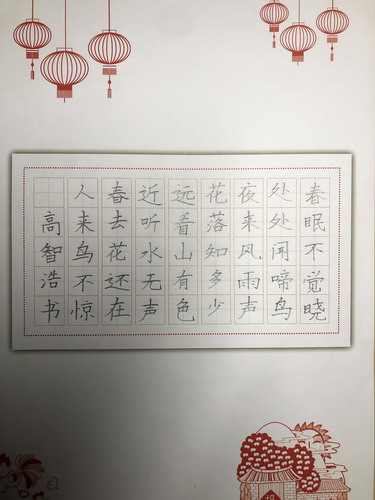 春眠不觉晓
处处闻啼鸟
夜来风雨声
花落知多少
远看山有色
近听水无声
春去花还在
人来鸟不惊
高智浩书